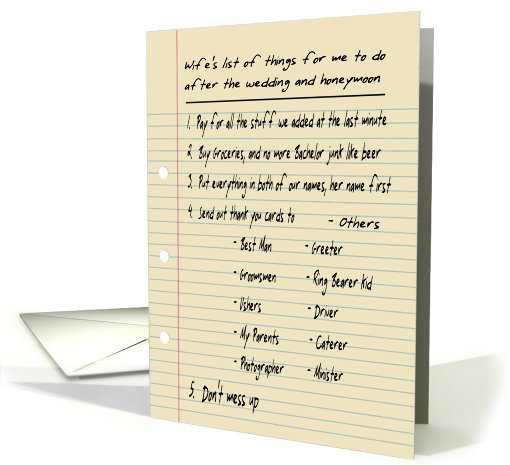 Wife's list of things for me to do
after the wedding and honeymoon
1. Pay for all the stuff we added at the last minute
2. Buy Groceries, and no more Bachelor junk like beer
3. Put everything in both of our names, her name first
4. Send out thank you cards to - Others
- Best Man - Greeter
- Groomsmen - Ring Bearer Kid
- Ushers - Driver
- My Parents - Caterer
- Photographer - Minister
5. Don't mess up